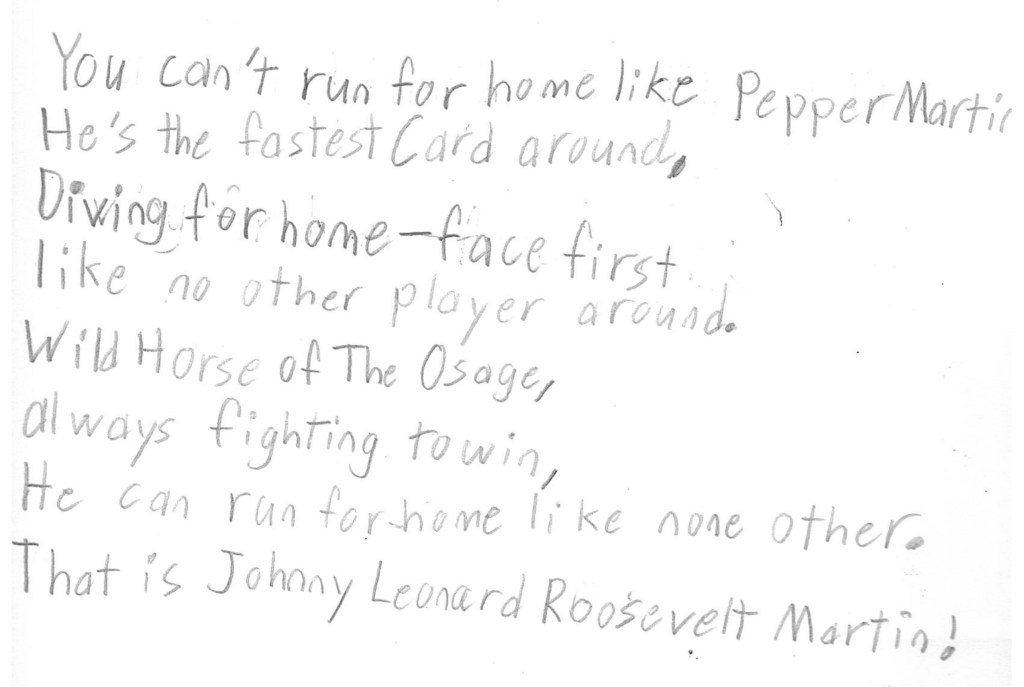 You can't run for home like Pepper Martin
He's the fastest Card around,
Diving for home-face first
like no other player around.
Wild Horse of The Osage,
always fighting to win,
He can run for home like none other.
That is Johnny Leonard Roosevelt Martin!